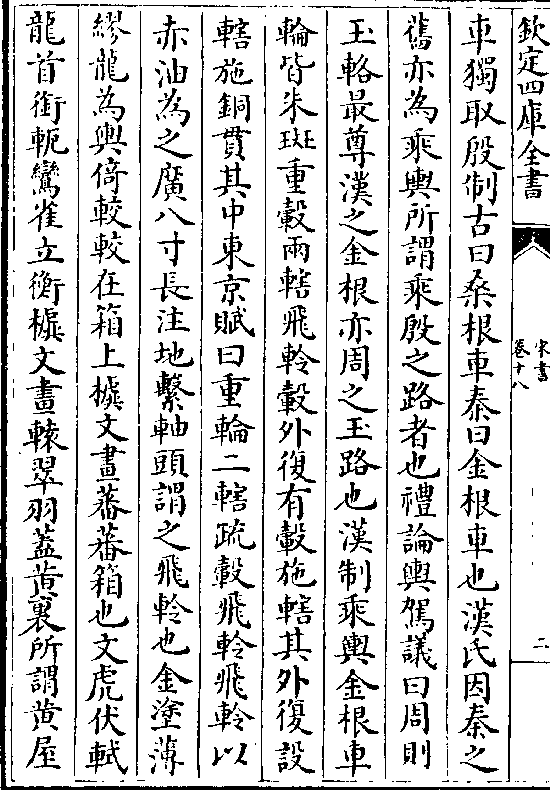 欽定四庫全書
宋書
卷十八
二
車獨取殷制古曰桑根車秦曰金根車也漢氏因秦之
舊亦為乘輿所謂乘殷之路者也禮論輿駕議曰周則
玉輅最尊漢之金根亦周之玉路也漢制乘輿金根車
輪皆朱斑重轂兩轄飛軨轂外復有轂施轄其外復設
轄施銅貫其中東京賦曰重輪二轄疏轂飛軨飛軨以
赤油為之廣八寸長注地繫軸頭謂之飛軨也金塗薄
繆龍為輿倚較較在箱上㯫文畫蕃蕃箱也文虎伏軾
龍首銜軛鸞雀立衡㯫文畫轅翠羽蓋黃裏所謂黃屋